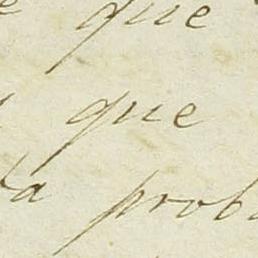 que
que
ta prob